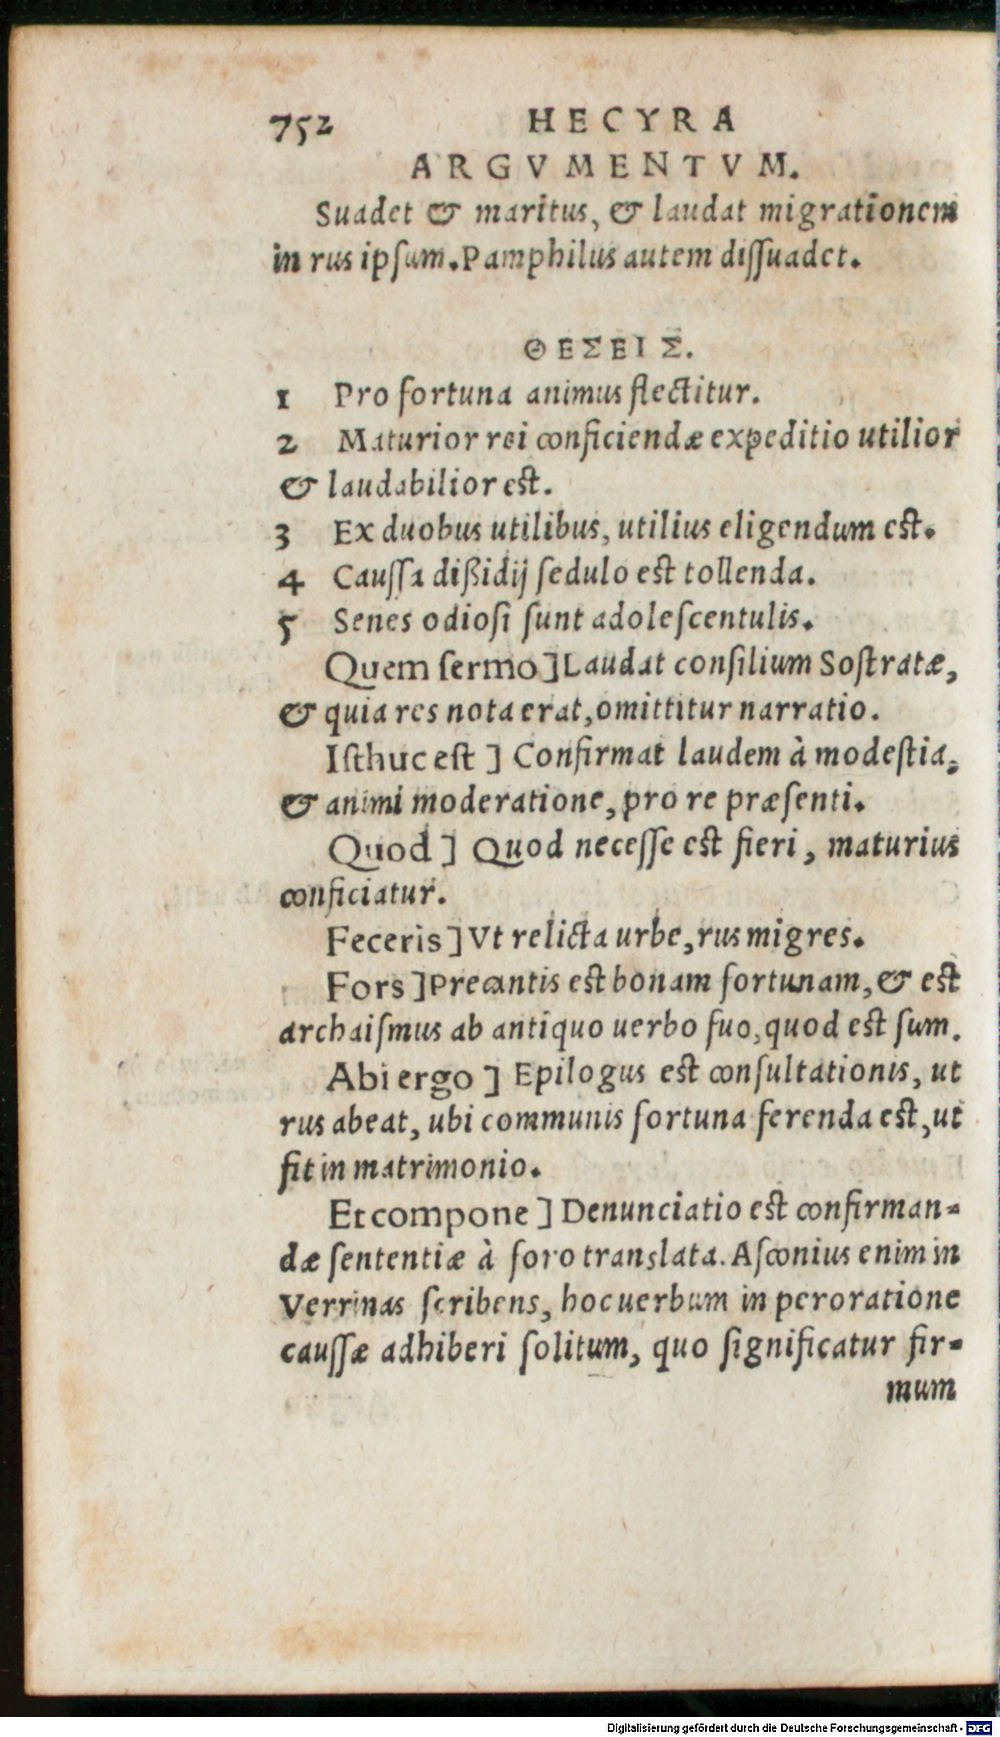 752 HECYRA
ARGVMENTVM.
Suadet & maritus, & laudat migrationem
in rus ipsum. Pamphilus autem dissuadet.
ΘΕΣΕΙΣ.
1 Pro fortuna animus flectitur.
2 Maturior rei conficiendæ expeditio utilior
& laudabilior est.
3 Ex duobus utilibus, utilius eligendum est.
4 Caussa dißidij sedulo est tollenda.
5 Senes odiosi sunt adolescentulis.
Quem sermo] Laudat consilium Sostratæ,
& quia res nota erat, omittitur narratio.
Isthuc est] Confirmat laudem à modestia,
& animi moderatione, pro re præsenti.
Quod] Quod necesse est fieri, maturius
conficiatur.
Feceris] Vt relicta urbe, rus migres.
Fors] Precantis est bonam fortunam, & est
archaismus ab antiquo uerbo fuo, quod est sum.
Abi ergo] Epilogus est consultationis, ut
rus abeat, ubi communis fortuna ferenda est, ut
fit in matrimonio.
Et compone] Denunciatio est confirman-
dæ sententiæ à foro translata. Asconius enim in
Verrinas scribens, hoc uerbum in peroratione
caussæ adhiberi solitum, quo significatur fir-
mum
Digitalisierung gefördert durch die Deutsche Forschungsgemeinschaft - DFG